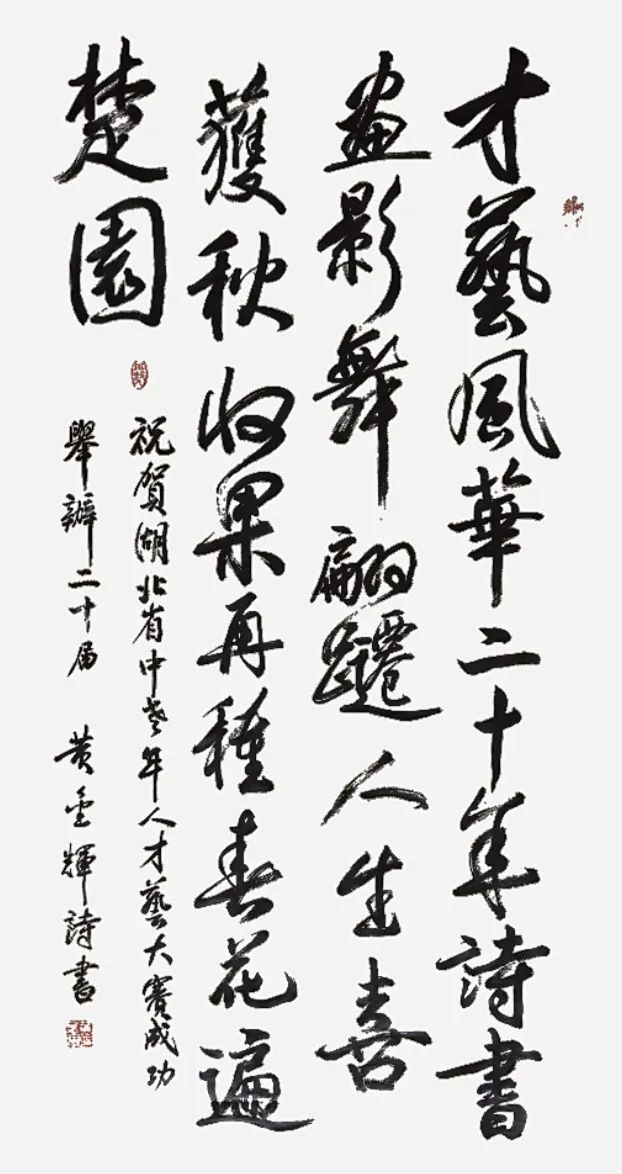 才藝風華二十年詩書
畫影舞翩蹮人生喜
獲秋收果再種春花遍
楚園
祝賀湖北省中老年人才藝大賽成功
舉辦二十届 黄金輝詩書